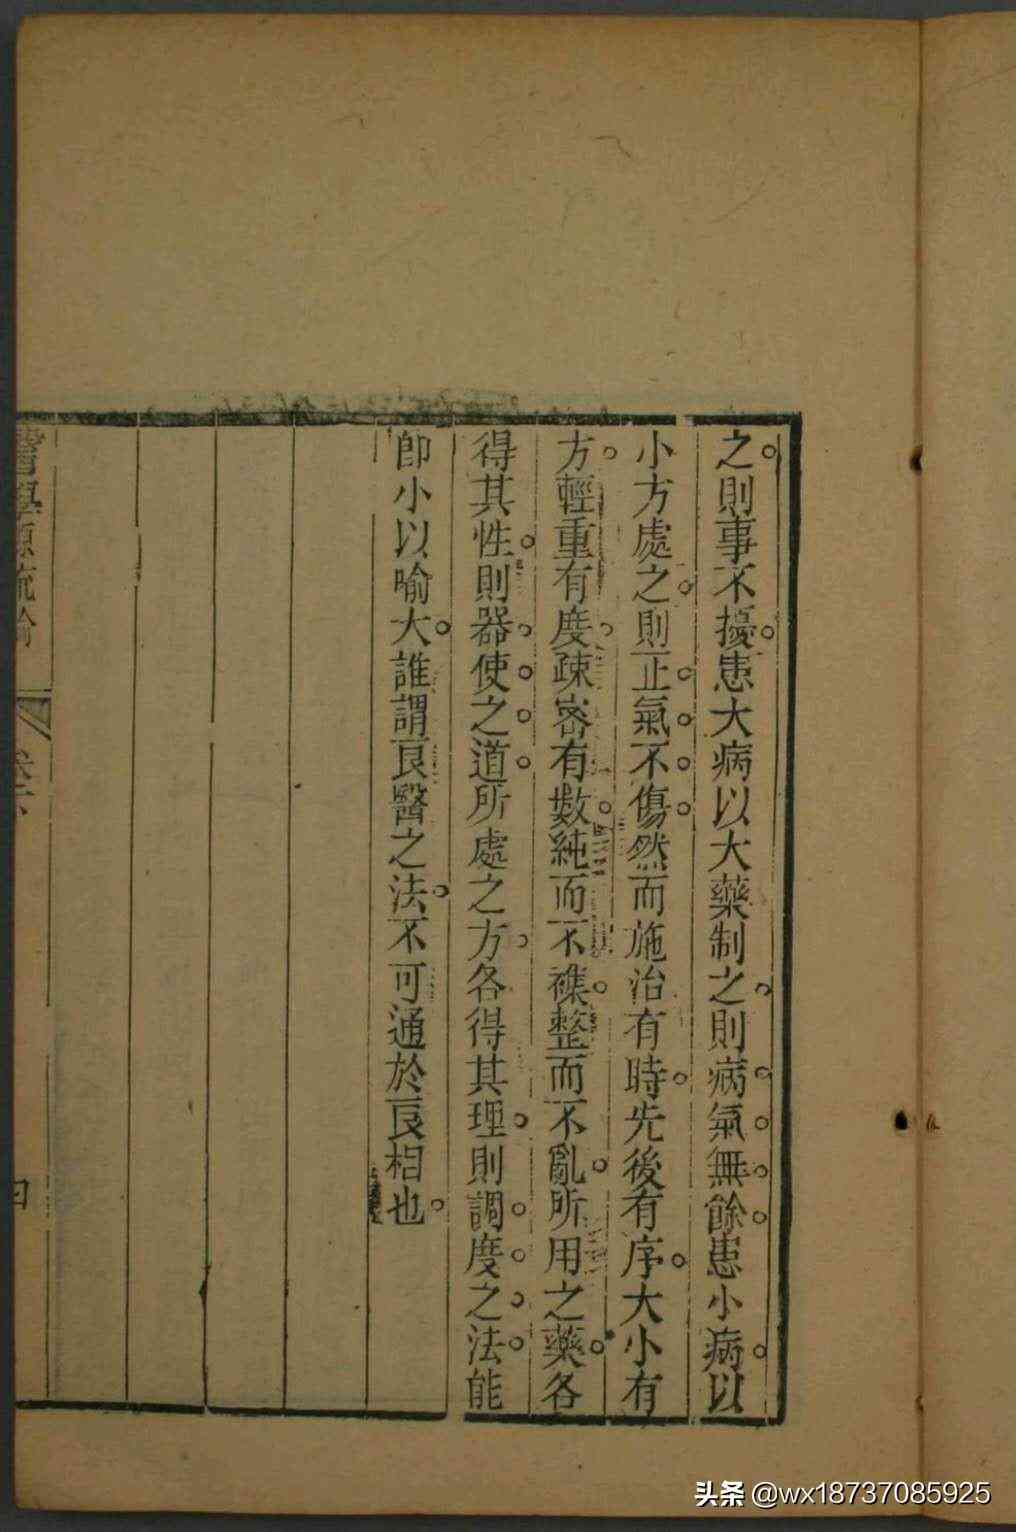 之則事不擾患大病以大藥制之則病氣無餘患小病以
小方處之則正氣不傷然而施治有時先後有序大小有
方輕重有度疎密有數純而不襍整而不亂所用之藥各
得其性則器使之道所處之方各得其理則調度之法能
卽小以喻大誰謂良醫之法不可通於良相也
醫學源流論
卷六
四
头条 @wx18737085925